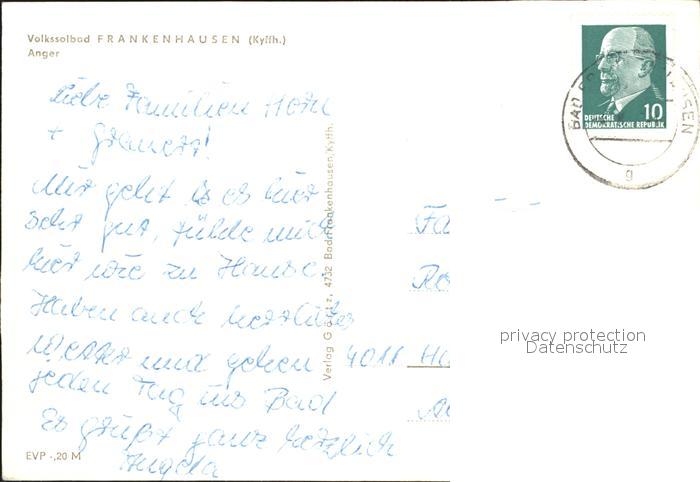 Volkssolbad FRANKENHAUSEN (Kyffh.)
Anger
Liebe Familien Horn
+
Mir geht es hier
sehr gut, fühle mich
hier wie zu Hause.
Haben auch herrliches
Wetter und gehen
jeden Tag ins Bad
Es grüßt ganz herzlich
Angela
EVP -,20 M
4732 Bad Frankenhausen/Kyffh.
Verlag
10
DEUTSCHE
DEMOKRATISCHE REPUBLIK
BAD
g
Fa
4011 Ha
privacy protection
Datenschutz